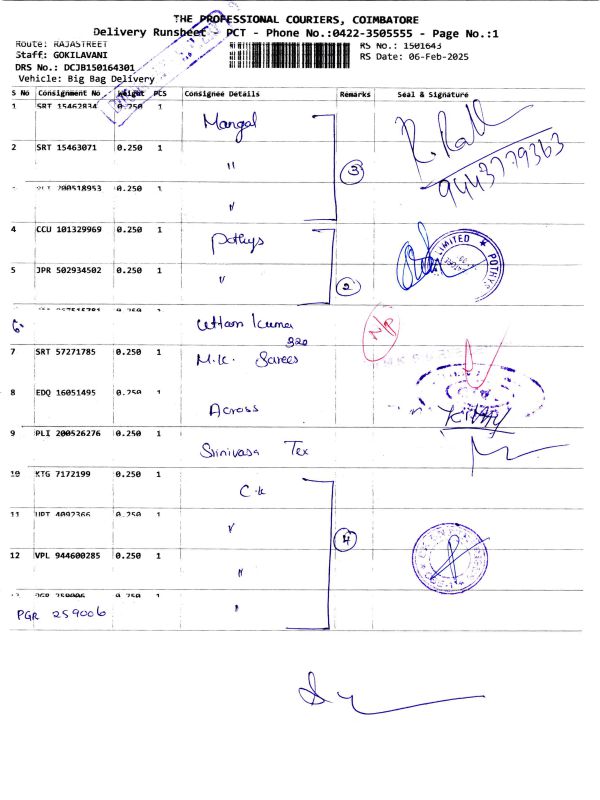 THE PROFESSIONAL COURIERS, COIMBATORE
Delivery Runsheet - PCT - Phone No.:0422-3505555 - Page No.:1
Route: RAJASTREET
RS No.: 1501643
Staff: GOKILAVANI
RS Date: 06-Feb-2025
DRS No.: DCJB150164301
Vehicle: Big Bag Delivery
S No Consignment No Weight PCS Consignee Details Remarks Seal & Signature
1 SRT 15462834 0.250 1 Mangal
9443779363
2 SRT 15463071 0.250 1 "
3
200518953 0.250 1 "
4 CCU 101329969 0.250 1 Pothys
LIMITED ★ POTHYS
5 JPR 502934502 0.250 1 "
2
6. 0.250 1
Uttam Kumar
N/P
320
7 SRT 57271785 0.250 1 M.K. Sarees
8 EDQ 16051495 0.250 1 Across
9 PLI 200526276 0.250 1 Srinivasa Tex
10 KTG 7172199 0.250 1 C.K
11 4092366 0.250 1 "
4
12 VPL 944600285 0.250 1 "
13 PGR 259006 0.250 1
PGR 259006 "